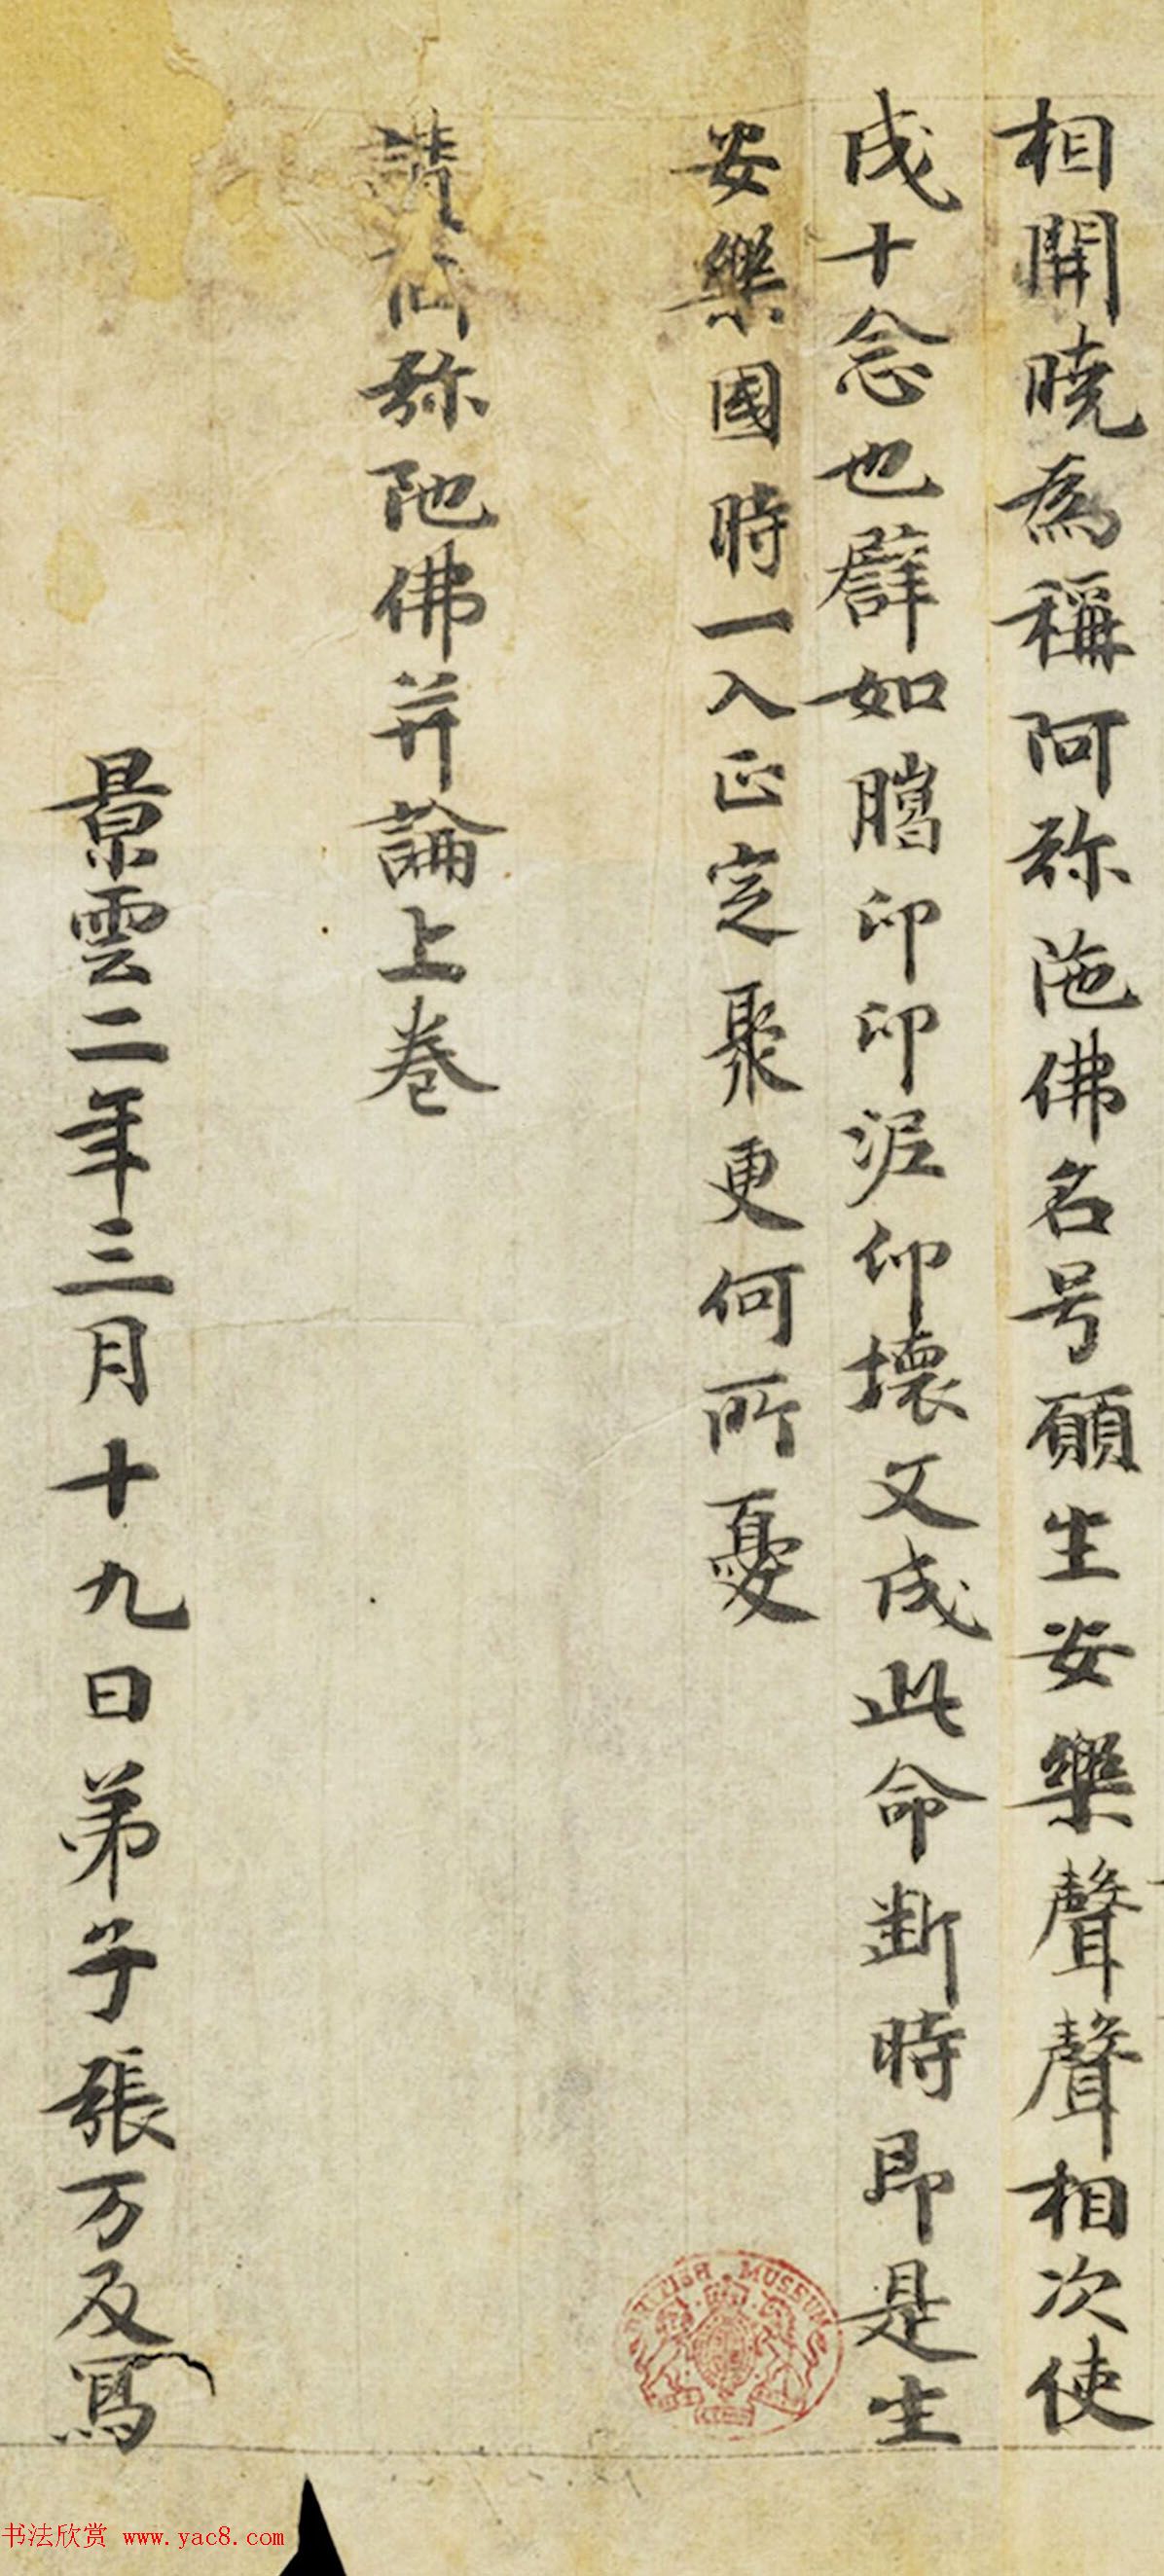 相開曉為稱阿弥陁佛名号願生安樂聲聲相次使
成十念也譬如臈印印泥印壞文成此命断時即是生
安樂國時一入正定聚更何所憂
讃 弥陁佛并論上卷
景雲二年三月十九日弟子張万及寫
BRITISH MUSEUM
书法欣赏 www.yac8.com